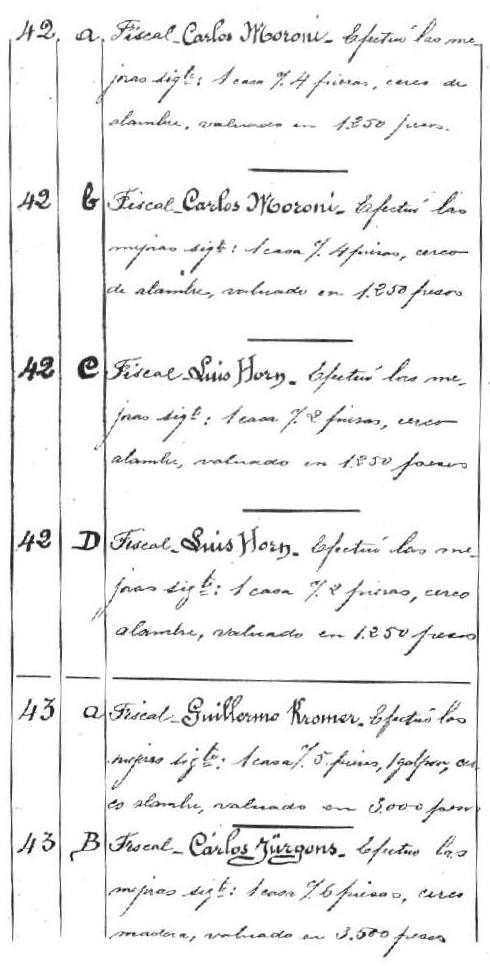 42. a. Fiscal - Carlos Moroni - Efectuó las me-
joras sigte: 1 casa 7. 4 piezas, cerco de
alambre, valuado en 1.250 pesos.
42 b Fiscal - Carlos Moroni - Efectuó las
mejoras sigte: 1 casa 7. 4 piezas, cerco
de alambre, valuado en 1.250 pesos
42 C Fiscal - Luis Horn - Efectuó las me-
joras sigte: 1 casa 7. 2 piezas, cerco
alambre, valuado en 1.250 pesos
42 D Fiscal - Luis Horn - Efectuó las me-
joras sigte: 1 casa 7. 2 piezas, cerco
alambre, valuado en 1.250 pesos
43 a Fiscal - Guillermo Kromer - Efectuó las
mejoras sigte: 1 casa 7. 5 piezas, 1 galpon, cer-
co alambre, valuado en 3.000 pesos
43 B Fiscal - Cárlos Jürgons - Efectuo las
mejoras sigte: 1 casa 7. 6 piezas, cerco
madera, valuado en 3.500 pesos